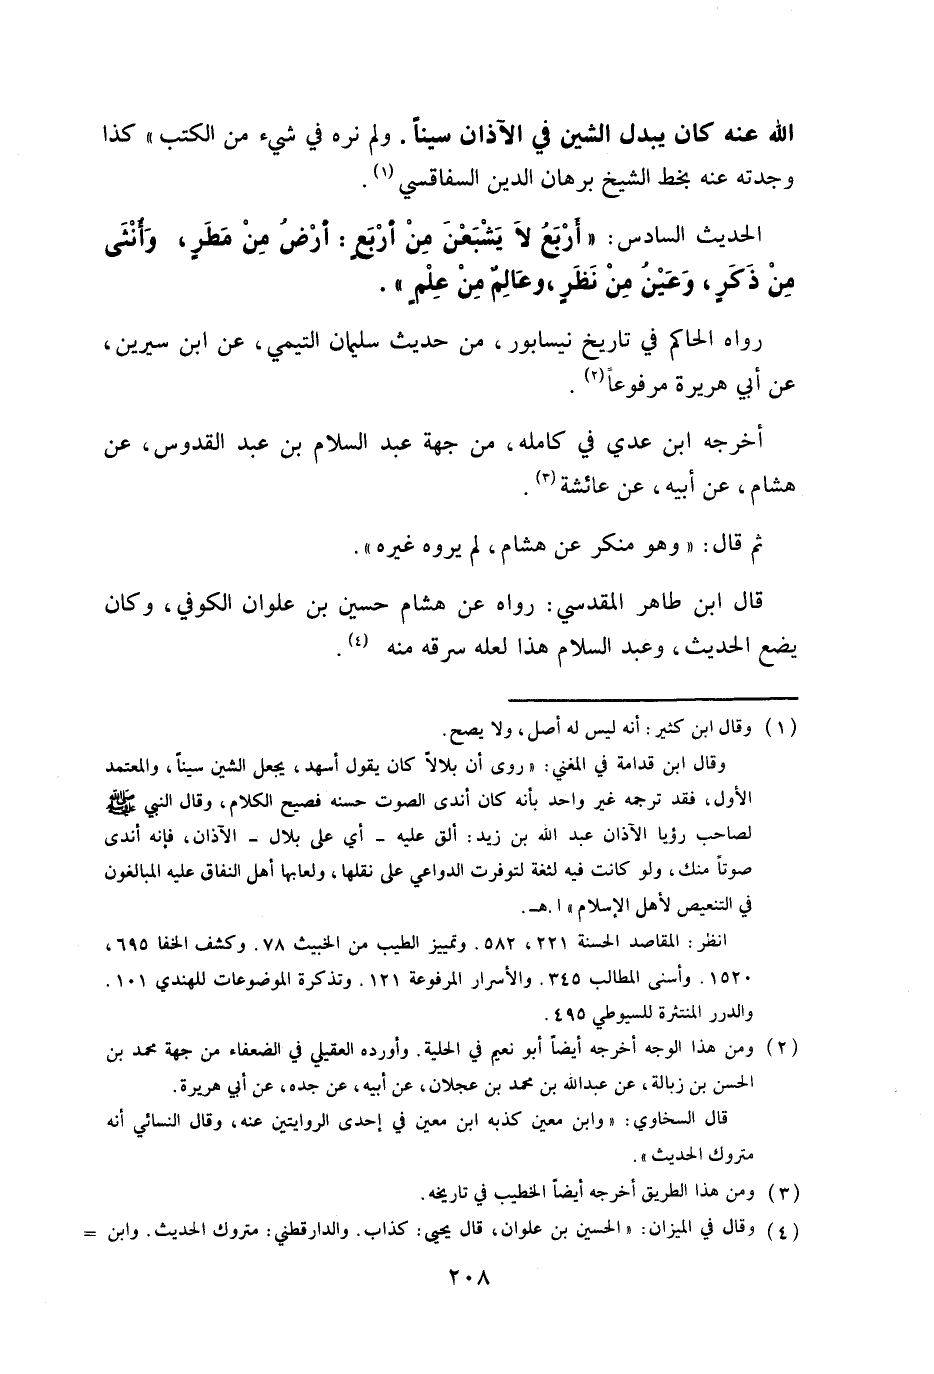 الله عنه كان يبدل الشين في الآذان سيناً. ولم نره في شيء من الكتب» كذا
وجدته عنه بخط الشيخ برهان الدين السفاقسي(١).
الحديث السادس: «أَرْبَعُ لاَ يَشْبَعْنَ مِنْ أرْبَعٍ: أرْضُ مِنْ مَطَرٍ، وَأُنْثَى
مِنْ ذَكَرٍ، وَعَيْنُ مِنْ نَظَرٍ، وعَالِمٌ مِنْ عِلْمٍ».
رواه الحاكم في تاريخ نيسابور، من حديث سليمان التيمي، عن ابن سيرين،
عن أبي هريرة مرفوعاً(٢).
أخرجه ابن عدي في كامله، من جهة عبد السلام بن عبد القدوس، عن
هشام، عن أبيه، عن عائشة(٣).
ثم قال: «وهو منكر عن هشام، لم يروه غيره».
قال ابن طاهر المقدسي: رواه عن هشام حسين بن علوان الكوفي، وكان
يضع الحديث، وعبد السلام هذا لعله سرقه منه (٤).
(١) وقال ابن كثير: أنه ليس له أصل، ولا يصح.
وقال ابن قدامة في المغني: «روى أن بلالاً كان يقول أسهد، يجعل الشين سيناً، والمعتمد
الأول، فقد ترجمه غير واحد بأنه كان أندى الصوت حسنه فصيح الكلام، وقال النبي ﷺ
لصاحب رؤيا الآذان عبد الله بن زيد: ألق عليه - أي على بلال - الآذان، فإنه أندى
صوتاً منك، ولو كانت فيه لثغة لتوفرت الدواعي على نقلها، ولعابها أهل النفاق عليه المبالغون
في التنعيص لأهل الإسلام» ا.هـ.
انظر: المقاصد الحسنة ٢٢١، ٥٨٢. وتمييز الطيب من الخبيث ٧٨. وكشف الخفا ٦٩٥،
١٥٢٠. وأسنى المطالب ٣٤٥. والأسرار المرفوعة ١٢١. وتذكرة الموضوعات للهندي ١٠١.
والدرر المنتثرة للسيوطي ٤٩٥.
(٢) ومن هذا الوجه أخرجه أيضاً أبو نعيم في الحلية. وأورده العقيلي في الضعفاء من جهة محمد بن
الحسن بن زبالة، عن عبدالله بن محمد بن عجلان، عن أبيه، عن جده، عن أبي هريرة.
قال السخاوي: «وابن معين كذبه ابن معين في إحدى الروايتين عنه، وقال النسائي أنه
متروك الحديث».
(٣) ومن هذا الطريق أخرجه أيضاً الخطيب في تاريخه.
(٤) وقال في الميزان: «الحسين بن علوان، قال يحيى: كذاب. والدارقطني: متروك الحديث. وابن =
٢٠٨